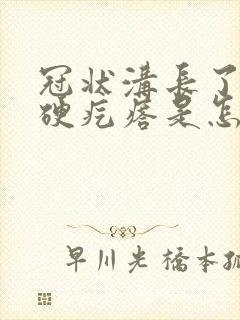 冠状溝長了
硬疙瘩是怎
早川光橋本孤